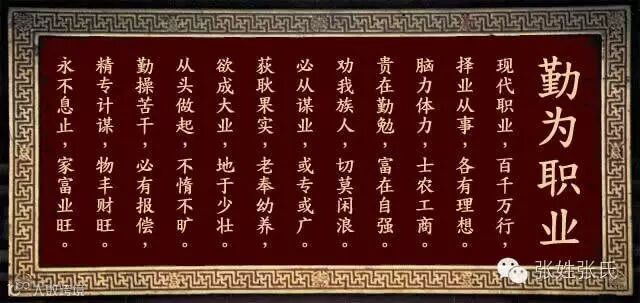 勤为职业
现代职业，百千万行，
择业从事，各有理想。
脑力体力，士农工商。
贵在勤勉，富在自强。
劝我族人，切莫闲浪。
必从谋业，或专或广。
获耿果实，老奉幼养，
欲成大业，地于少壮。
从头做起，不惰不旷。
勤操苦干，必有报偿，
精专计谋，物丰财旺。
永不息止，家富业旺。
张姓张氏